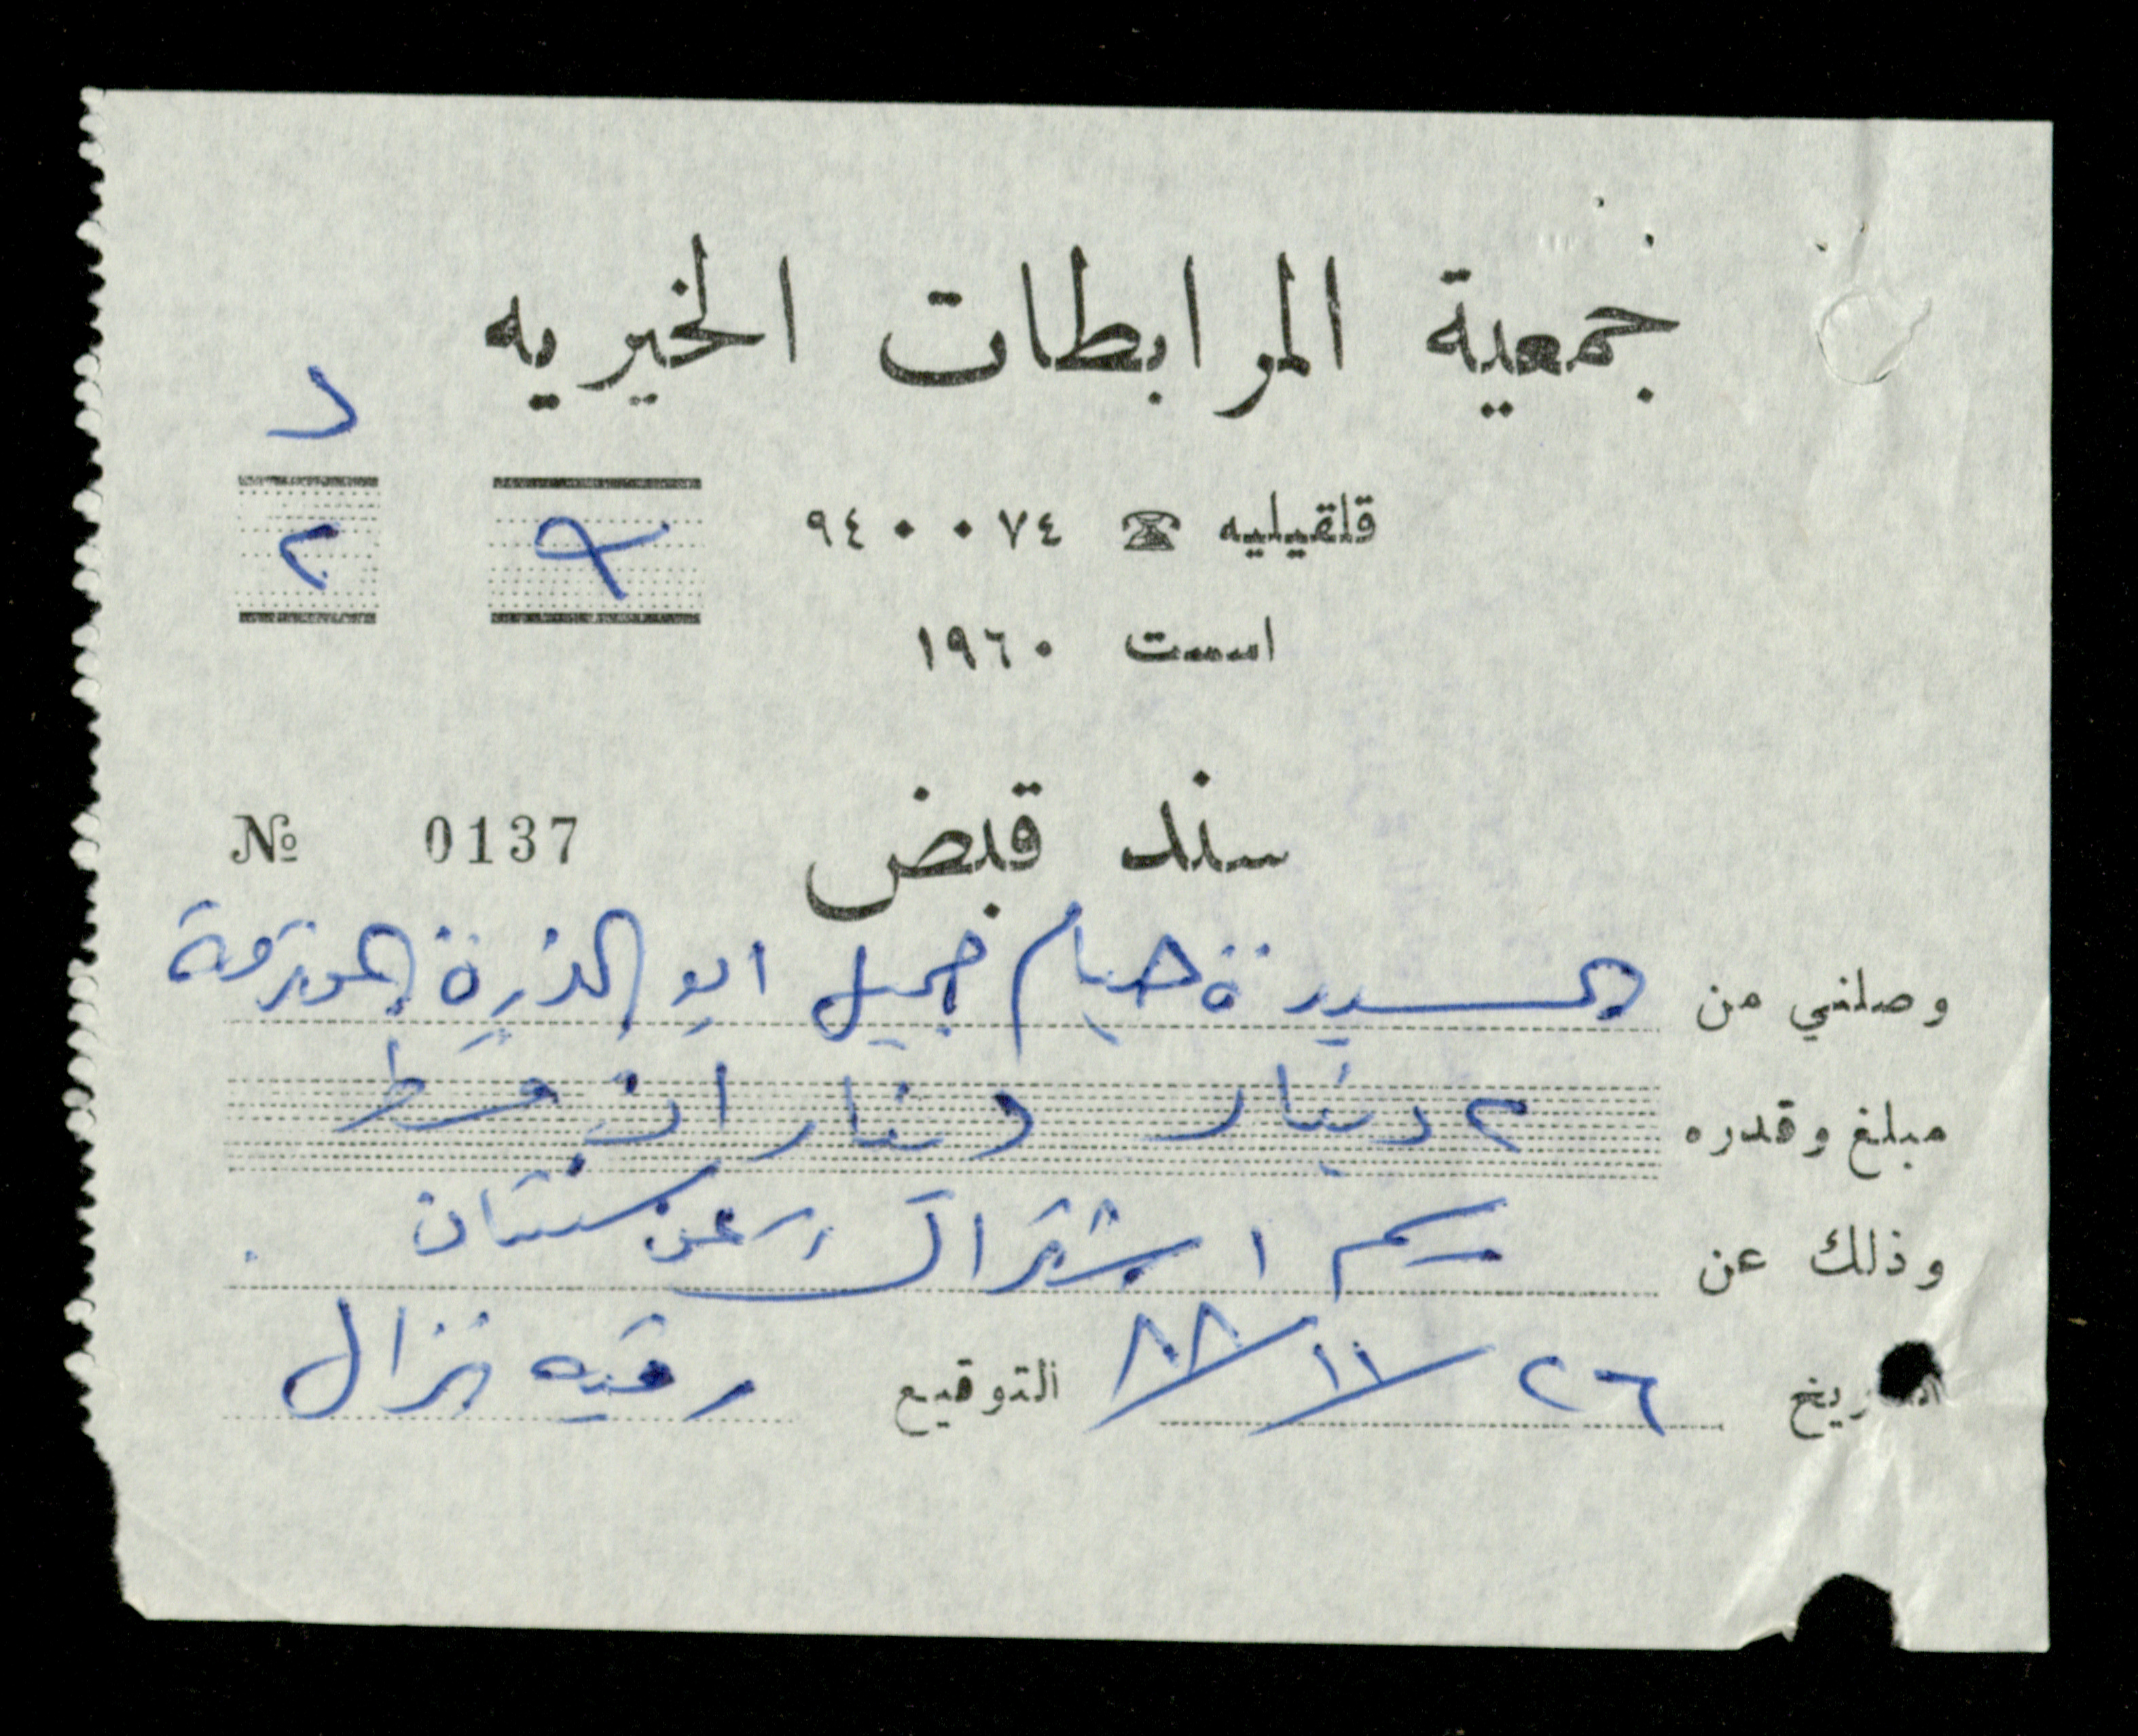 جمعية المرابطات الخيريه
د
قلقيليه ☎ ٩٤٠٠٧٤
٢
اسست ١٩٦٠
سند قبض
№ 0137
وصلني من السيدة هيام جميل ابو الذرة المحترمة
مبلغ وقدره ٢ دينار ديناران فقط
وذلك عن رسم اشتراك عن سنتان
التاريخ ٢٦/١١/٨٨ التوقيع رقيه نزال